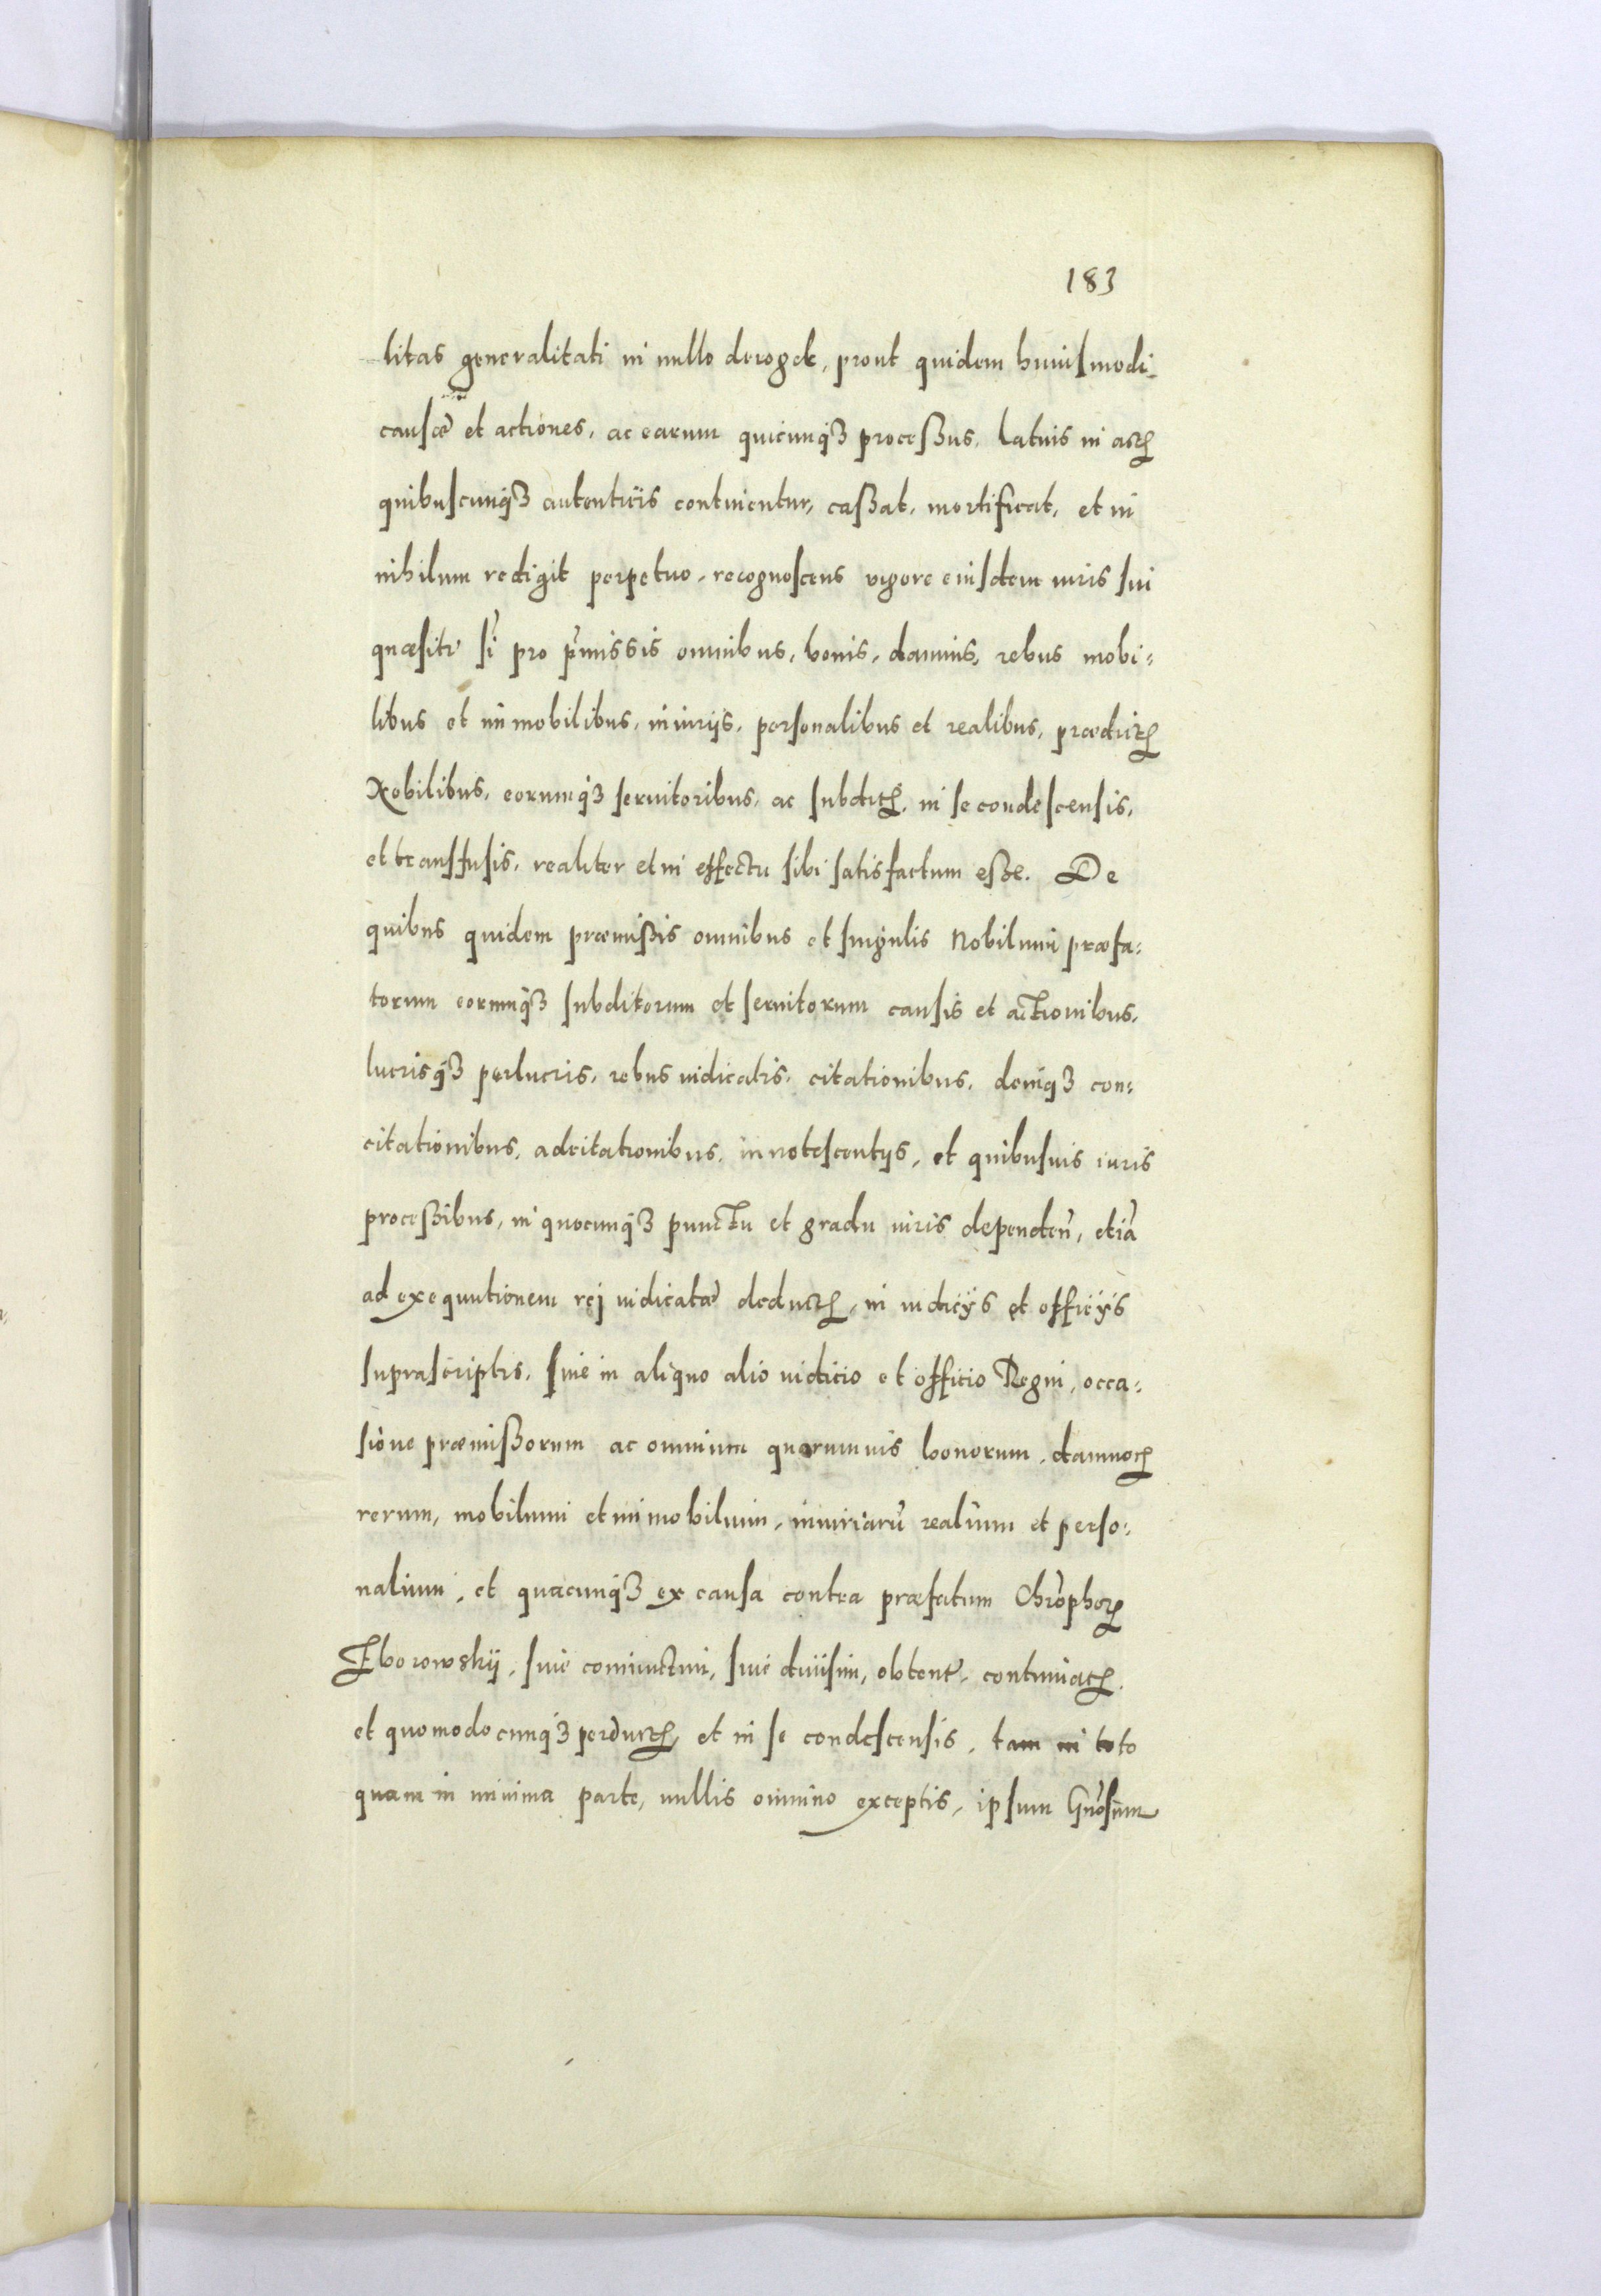 183
litas generalitati in nullo deroget, prout quidem huiusmodi
causæ et actiones, ac earum quicunqꝫ processus, latius in actꝭ
quibuscunqꝫ autenticis continentur, cassat, mortificat, et in
nihilum redigit perpetuo, recognoscens vigore eiusdem iuris sui
quæsiti, sī pro p̄missis omnibus, bonis, damnis, rebus mobi:
libus et immobilibus, iniurijs, personalibus et realibus, prædictꝭ
Nobilibus, eorumqꝫ seruitoribus, ac subditꝭ, in se condescensis,
et transfusis, realiter et in effectu sibi satisfactum esse. De
quibus quidem præmissis omnibus et singulis Nobilium præfa:
torum eorumqꝫ subditorum et seruitorum causis et actionibus,
lucrisqꝫ perlucris, rebus iudicatis, citationibus, deniqꝫ con:
citationibus, adcitationibus, innotescentijs, et quibusuis iuris
processibus, in quocunqꝫ punctu et gradu iuris dependen̄, etiā
ad exequutionem rej iudicatæ deductꝭ, in iudicijs et officijs
suprascriptis, siue in aliquo alio iudicio et officio Regni, occa:
sione præmissorum ac omnium quorumuis bonorum, damnorꝭ
rerum, mobilium et immobilium, iniuriarū realium et perso:
nalium, et quacunqꝫ ex causa contra præfatum Chrōphorꝭ
Zborowskij, siue coniunctim, siue diuisim, obtent̄, continuatꝭ,
et quomodocunqꝫ perductꝭ, et in se condescensis, tam in toto
quam in minima parte, nullis omnino exceptis, ipsum Gn̄osum